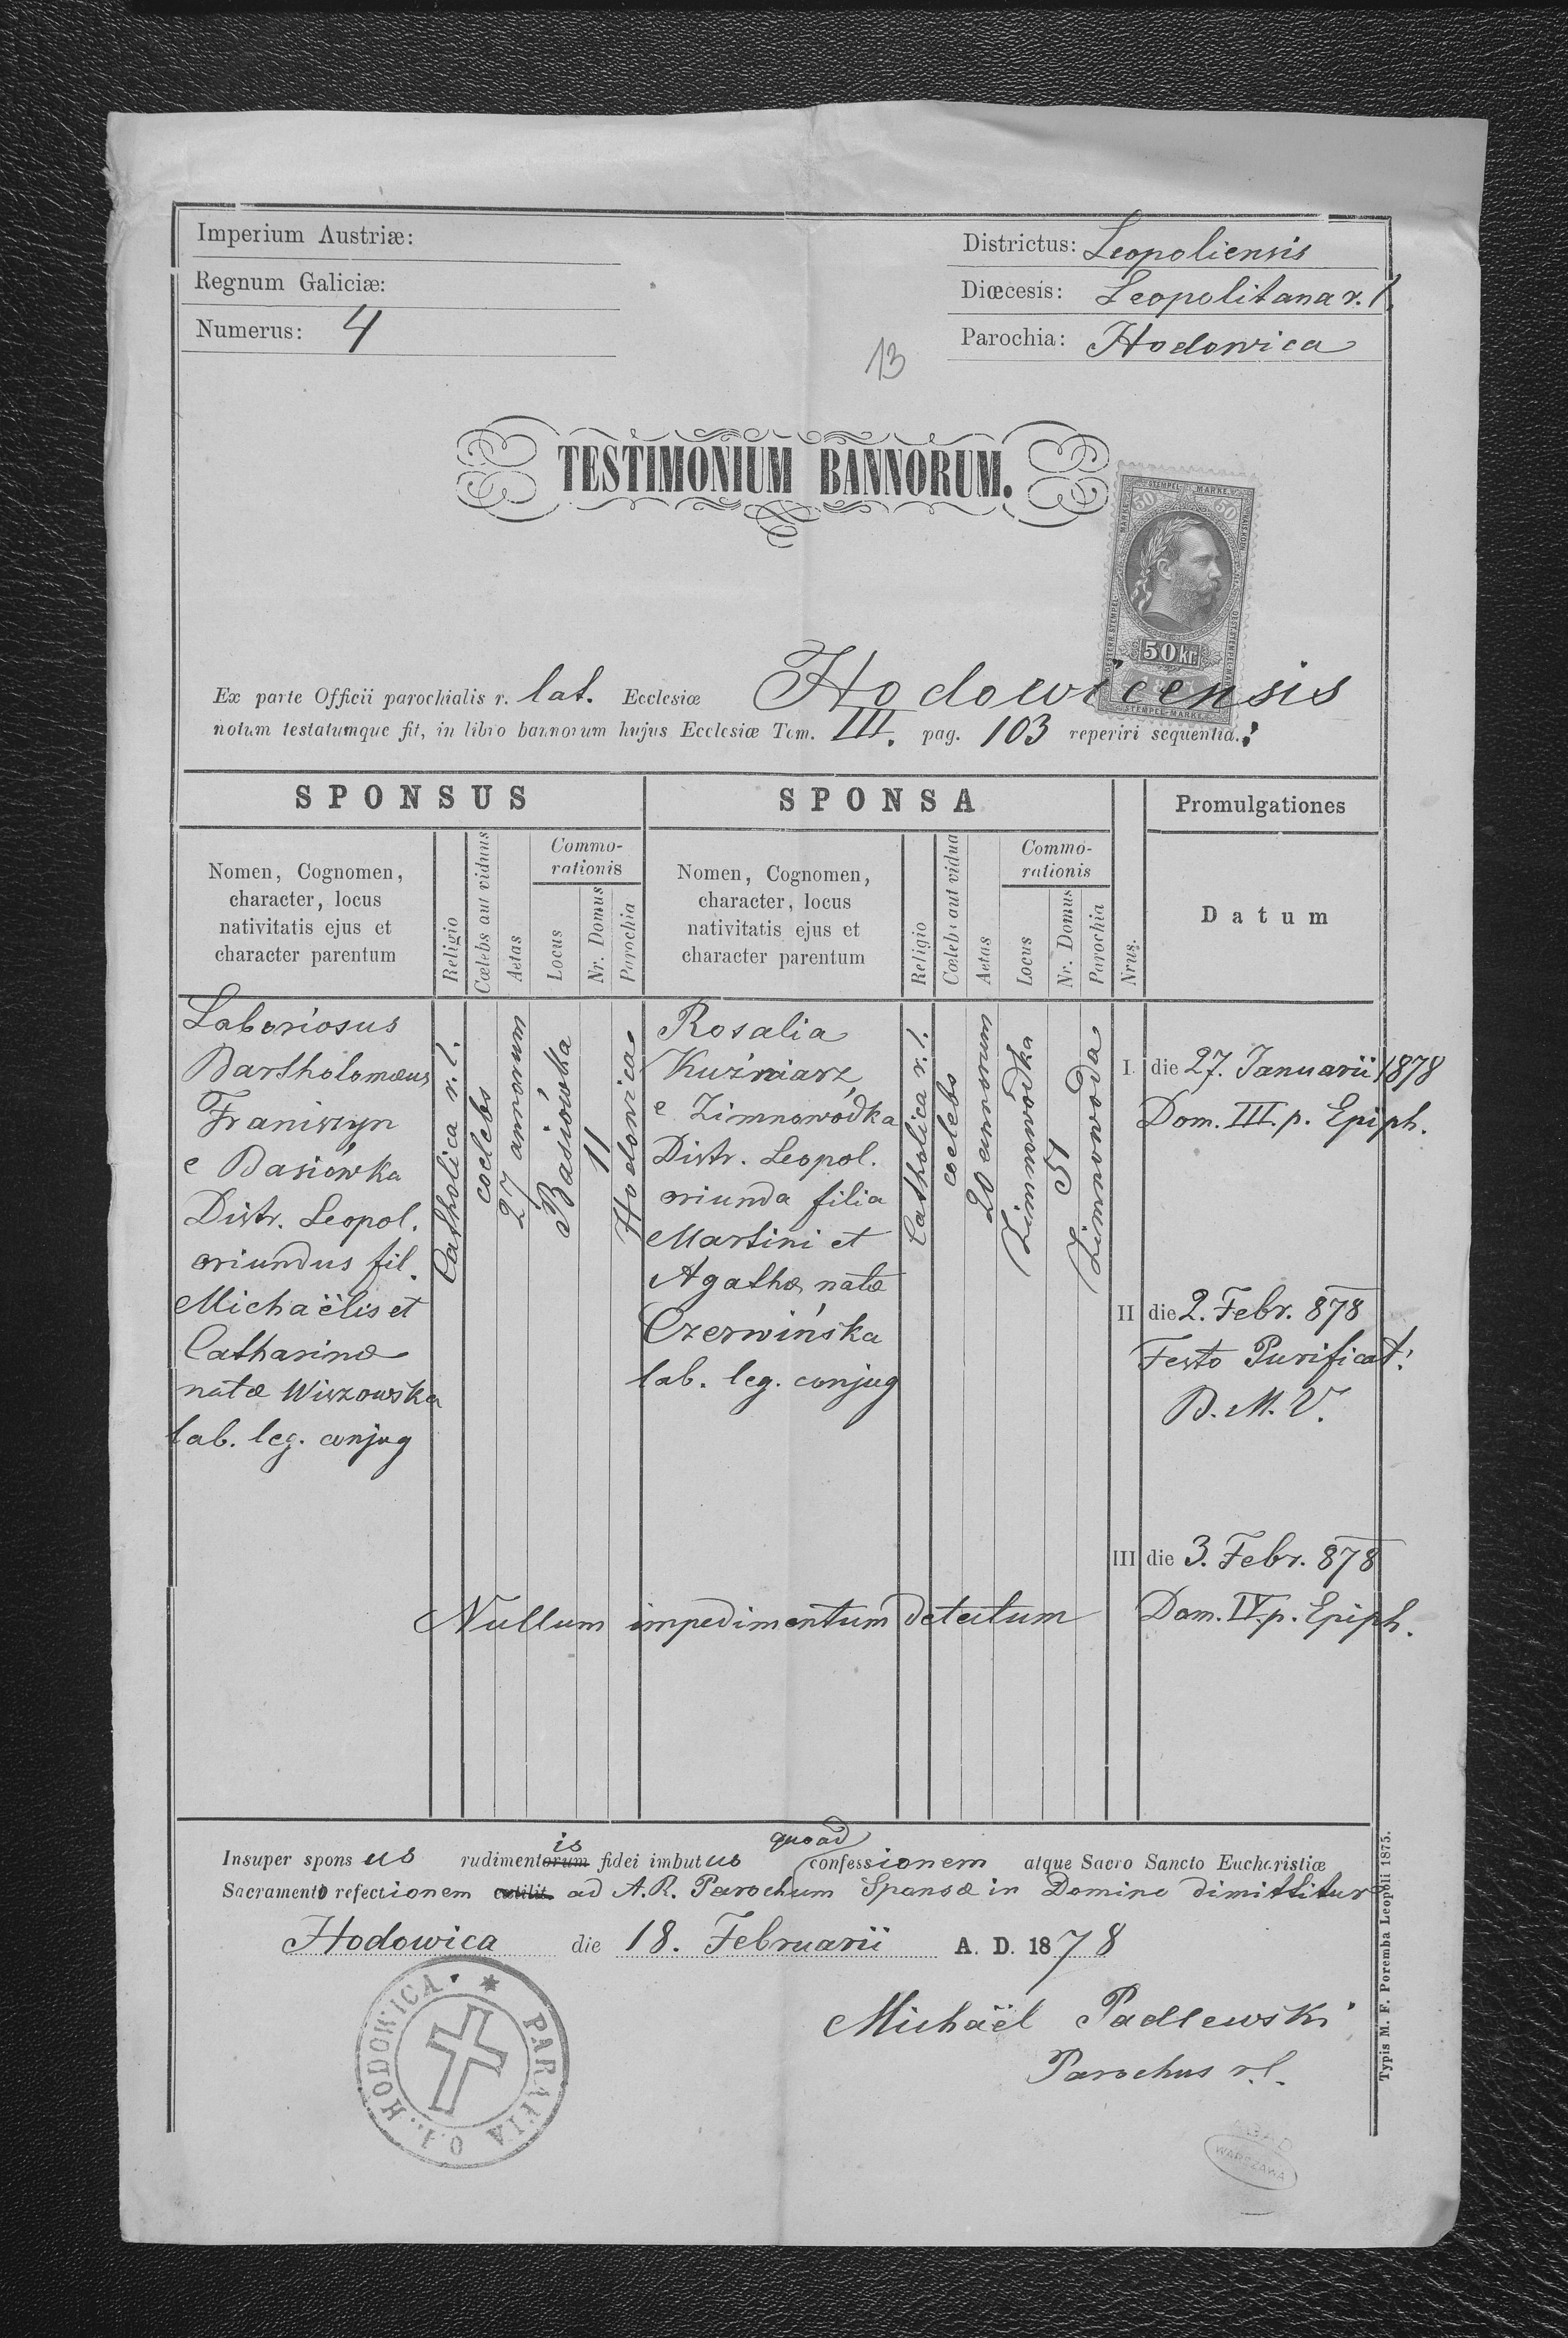 Imperium Austriæ:
Regnum Galiciæ:
Numerus: 4
Districtus: Leopoliensis
Diœcesis: Leopolitana r. l.
Parochia: Hodowica
13
TESTIMONIUM BANNORUM.
STEMPEL MARKE
50 50
50 kr
STEMPEL-MARKE
Ex parte Officii parochialis r. lat. Ecclesiæ Hodowicensis
notum testatumque fit, in libro bannorum hujus Ecclesiæ Tom. III. pag. 103 reperiri sequentia:
SPONSUS
SPONSA
Promulgationes
Nomen, Cognomen,
character, locus
nativitatis ejus et
character parentum
Religio
Cœlebs aut viduus
Aetas
Commo-
rationis
Locus
Nr. Domus
Parochia
Nomen, Cognomen,
character, locus
nativitatis ejus et
character parentum
Religio
Cœlebs aut vidua
Aetas
Commo-
rationis
Locus
Nr. Domus
Parochia
Nrus.
Datum
Laboriosus
Bartholomæus
Franiszyn
e Basiówka
Distr. Leopol.
oriundus fil.
Michaëlis et
Catharinæ
natæ Wiszowska
lab. leg. conjug
Catholica r. l.
coelebs
27 annorum
Basiówka
11
Hodowica
Rosalia
Kuźniarz
e Zimnowódka
Distr. Leopol.
oriunda filia
Martini et
Agathæ natæ
Czerwińska
lab. leg. conjug
Catholica r. l.
coelebs
20 annorum
Zimnowodka
51
Zimnowoda
I. die 27. Januarii 1878
Dom. III. p. Epiph.
II die 2. Febr. 878
Festo Purificat:
B. M. V.
III die 3. Febr. 878
Dom. IV. p. Epiph.
Nullum impedimentum detectum
is quoad
Insuper spons us rudimentorum fidei imbut us confessionem atque Sacro Sancto Eucharistiæ
Sacramento refectionem ad A. R. Parochum Sponsæ in Domino dimittitur
Hodowica die 18. Februarii A. D. 1878
Michäel Padlewski
Parochus r. l.
PARAFIA O.Ł. HODOWICA
Typis M. F. Poremba Leopoli 1875.
AGAD
WARSZAWA